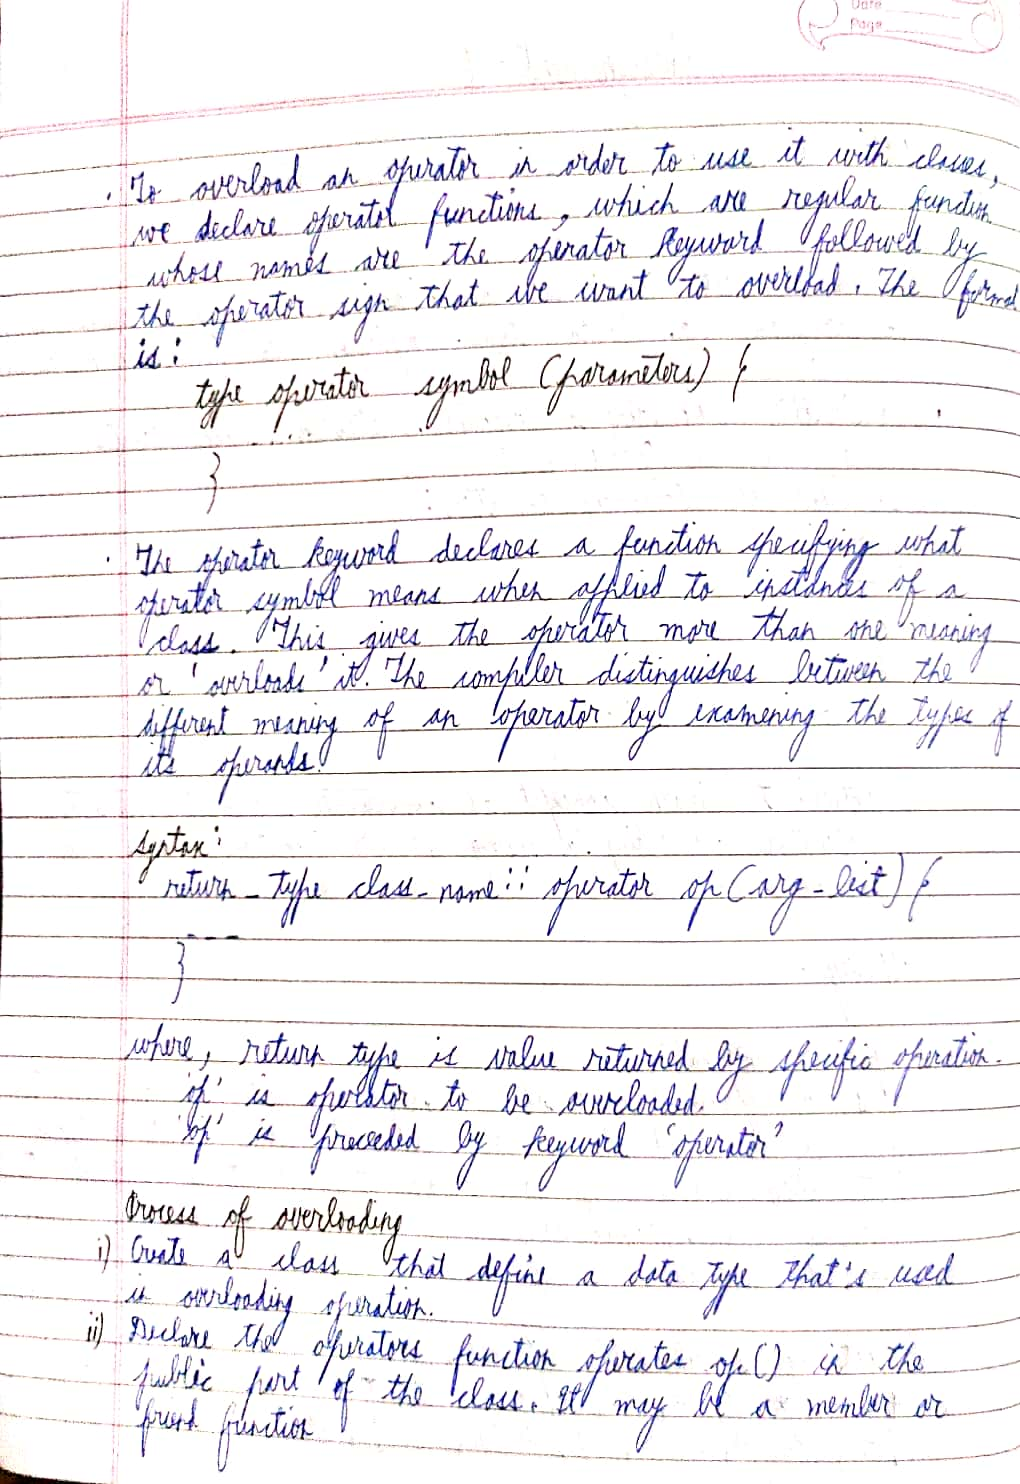 Date
Page
. To overload an operator in order to use it with classes,
we declare operator functions, which are regular function
whose names are the operator keyword followed by
the operator sign that we want to overload. The format
is:
type operator symbol (parameters) {
......
}
. The operator keyword declares a function specifying what
operator symbol means when applied to instances of a
class. This gives the operator more than one meaning
or 'overloads' it. The compiler distinguishes between the
different meaning of an operator by examening the types of
its operands.
Syntax:
return_type class_name:: operator op(arg-list) {
----
}
where, return type is value returned by specific operation.
'op' is operator to be overloaded.
'op' is preceeded by keyword 'operator'
Process of overloading
i) Create a class that define a data type that's used
in overloading operation.
ii) Declare the operators function operates op() in the
public part of the class. It may be a member or
friend function